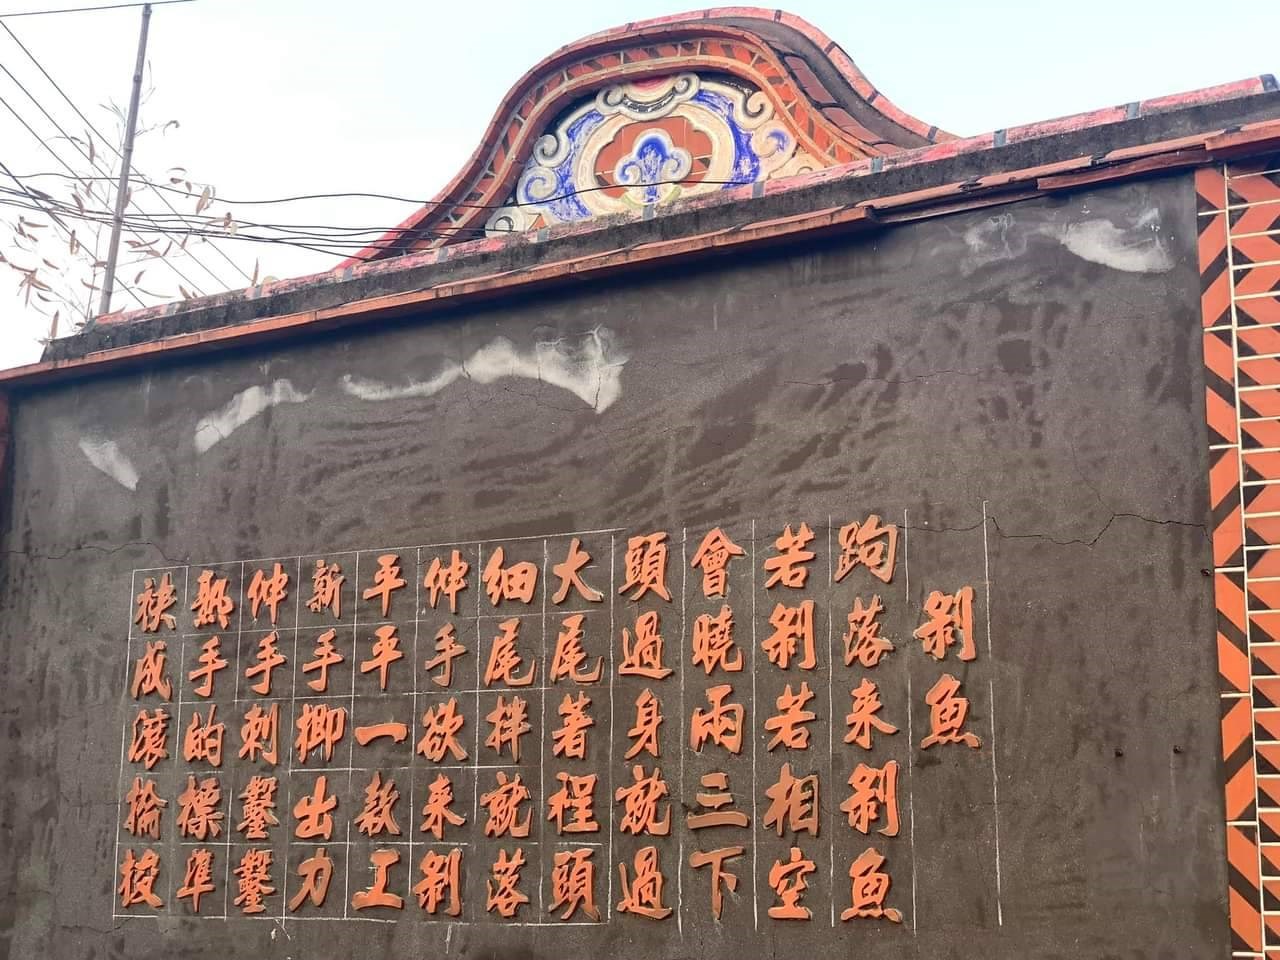 剝魚
跔落来剝魚
若剝若相空
會曉兩三下
頭過身就過
大尾著程頭
細尾拌就落
伸手欲来剝
平平一款工
新手揤出力
伸手刺鑿鑿
熟手的標準
袂成滾掄梭